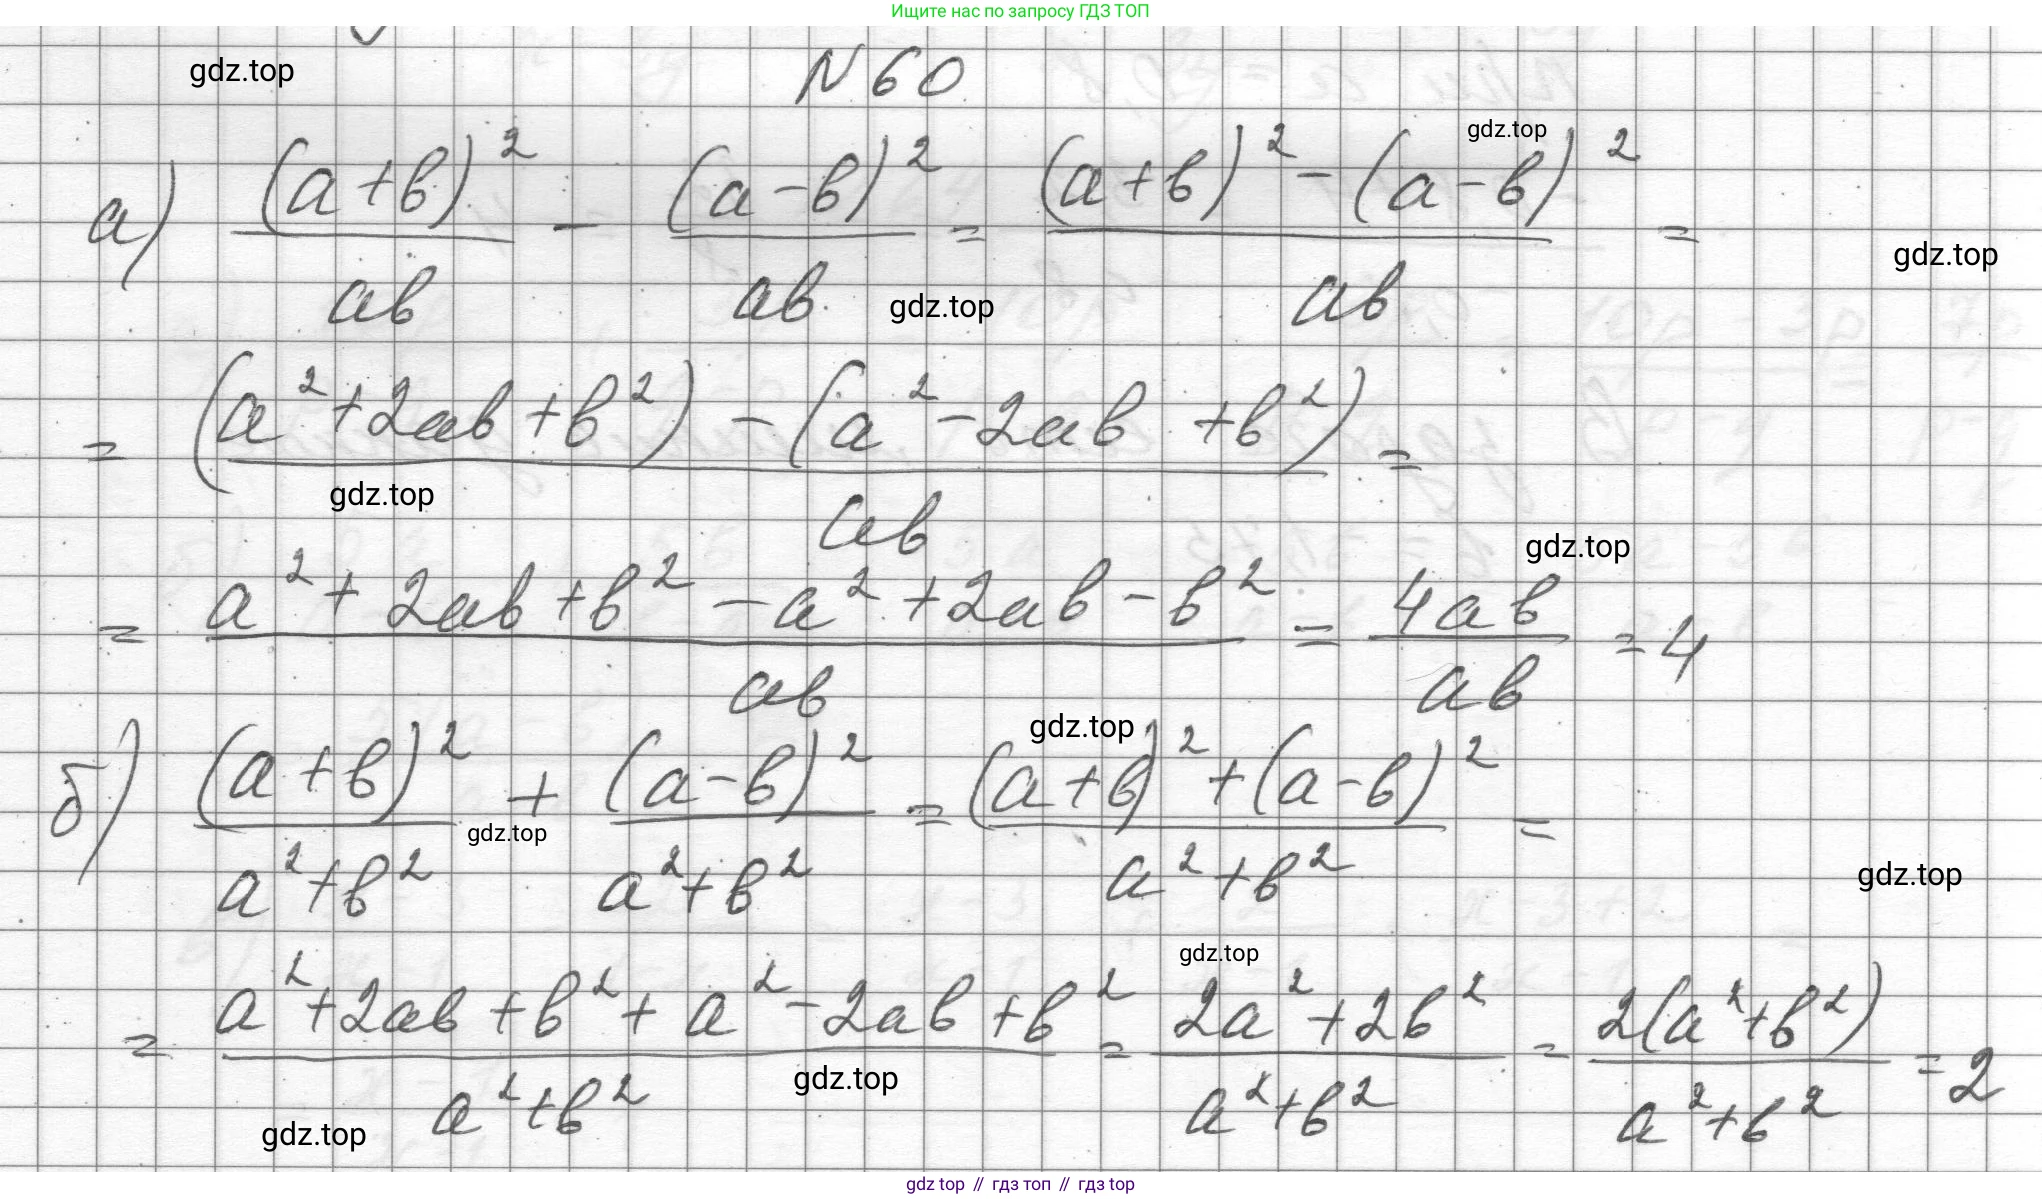 Ищите нас по запросу ГДЗ ТОП
gdz.top
N 60
gdz.top
а) (a+b)²/ab − (a−b)²/ab = ((a+b)²−(a−b)²)/ab =
gdz.top
gdz.top
= ((a²+2ab+b²)−(a²−2ab+b²))/ab =
gdz.top
gdz.top
= (a²+2ab+b²−a²+2ab−b²)/ab = 4ab/ab = 4
gdz.top
б) (a+b)²/(a²+b²) + (a−b)²/(a²+b²) = ((a+b)²+(a−b)²)/(a²+b²) =
gdz.top
gdz.top
gdz.top
= (a²+2ab+b²+a²−2ab+b²)/(a²+b²) = (2a²+2b²)/(a²+b²) = 2(a²+b²)/(a²+b²) = 2
gdz.top
gdz.top
gdz top // гдз топ // гдз top